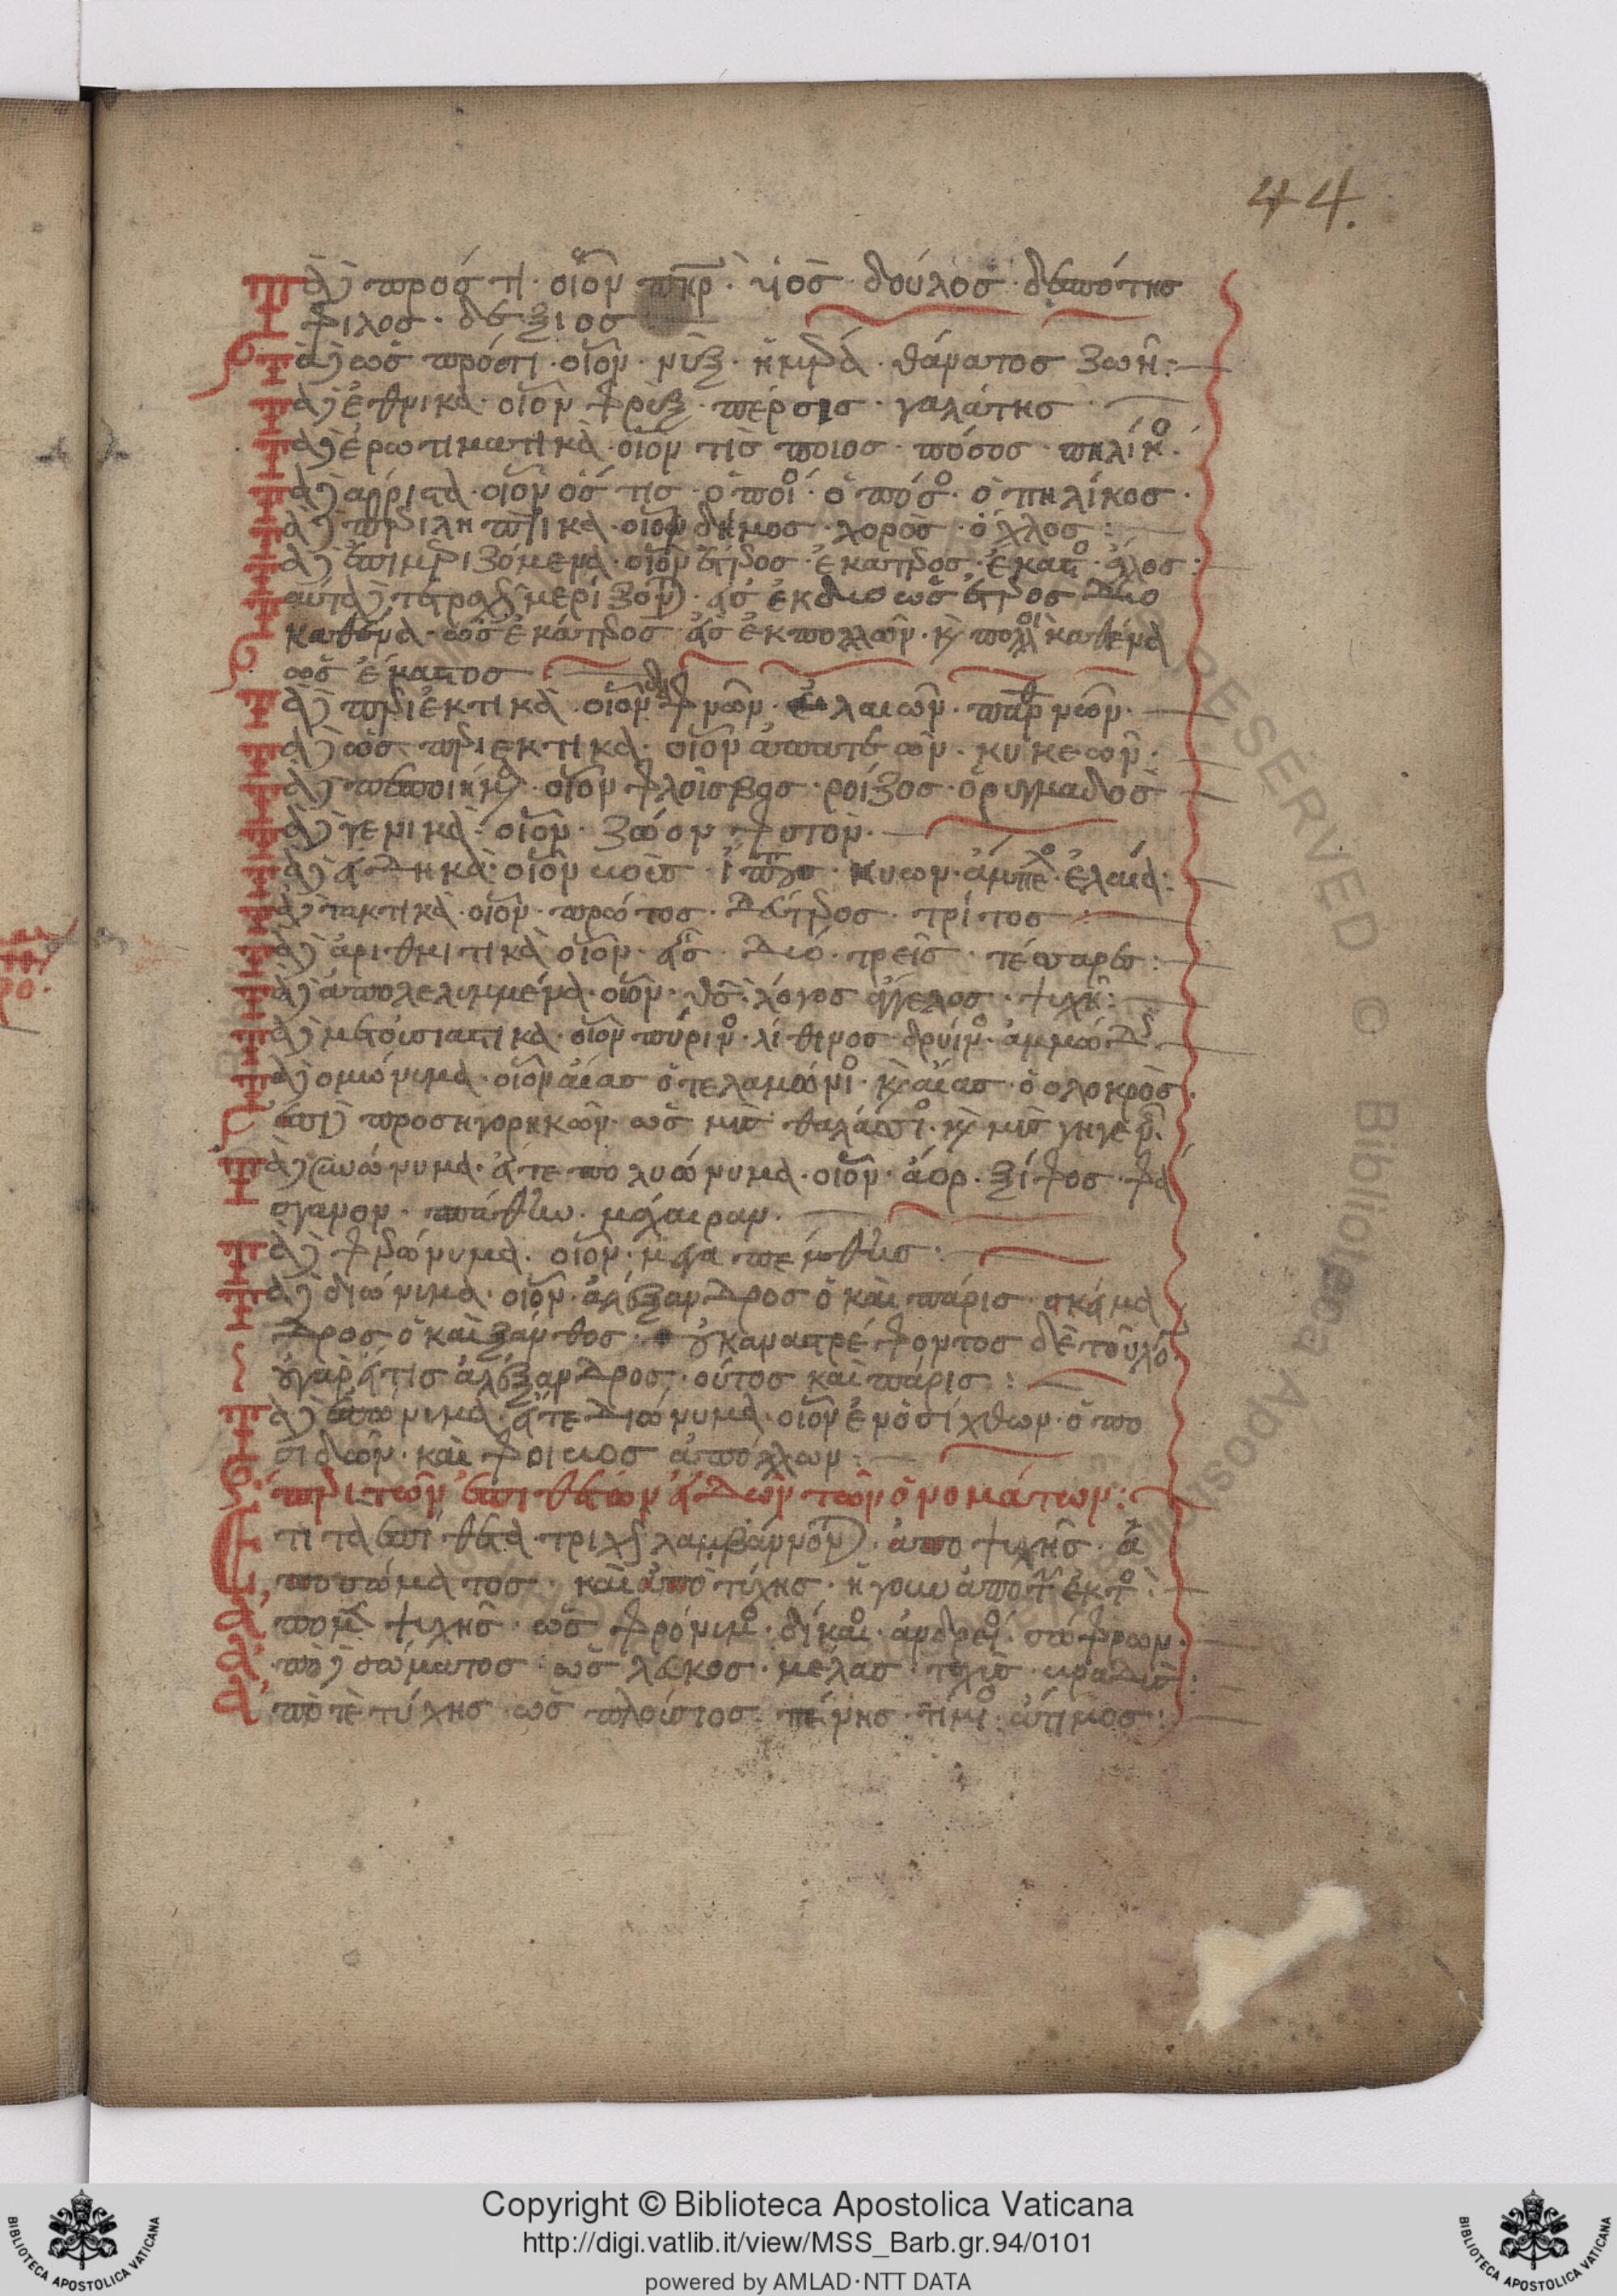 44.
Τὰ δὲ πρός τι· οἷον πηρ· υἱὸς· δοῦλος· δεσπότης
φίλος· δεξιός
Τὰ δὲ ὡς πρός τι· οἷον· νὺξ· ἡμέρα· θάνατος ζωή:
Τὰ δὲ ἐθνικὰ· οἷον φρὺξ· πέρσις· γαλάτης
Τὰ δὲ ἐρωτιματικὰ· οἷον τίς ποιος· πόσος· πηλίκος
Τὰ δὲ ἀόριστα· οἷον ὅς τις· ὁποῖος· ὁπόσος· ὁπηλίκος·
Τὰ δὲ περιληπτικὰ· οἷον δῆμος· χορὸς· ὄχλος:
Τὰ δὲ ἐπιμεριζόμενα· οἷον ἕτερος· ἑκάτερος· ἕκαστος· ἄλλος:
ἐκ δύο ὡς ἕτερος
καθένα· ὡς ἑκάτερος· ἐκ πολλῶν· καὶ πολλοὶ καθένα
ὡς ἕκαστος
Τὰ δὲ περιεκτικὰ· οἷον δαφνών· ἐλαιών· παρθενών·
Τὰ δὲ ὡς περιεκτικὰ· οἷον κυκεών·
Τὰ δὲ πεποιημένα· οἷον φλοῖσβος· ροῖζος· ὀρυγμαδός
Τὰ δὲ γενικὰ· οἷον· ζῶον φυτόν·
Τὰ δὲ εἰδηκὰ· οἷον βοῦς· ἵππος· κυων· ἄμπελος· ἐλαία:
Τὰ δὲ τακτικὰ· οἷον· πρώτος· δεύτερος· τρίτος
Τὰ δὲ ἀριθμιτικὰ οἷον· εἷς· δύο· τρεῖς· τέσσαρες:
Τὰ δὲ ἀπολελυμμένα· οἷον· θς· λόγος ἄγγελος· ψυχή:
Τὰ δὲ μετουσιαστικὰ· οἷον πύρινος· λίθινος· δρύινος· ἀμμώδης
Τὰ δὲ ομώνιμα· οἷον αἴας ὁ τελαμώνιος· καὶ αἴας· ὁ ολοκρὸς
ἐπὶ δὲ προσηγορηκῶν· ὡς μῦς θαλάσσιος· καὶ μῦς γηγενής
Τὰ δὲ συνώνυμα· εἴτε πολυώνυμα· οἷον· ἄορ· ξίφος· φά
σγανον· σπάθην· μάχαιραν·
Τὰ δὲ φερώνυμα· οἷον·
Τὰ δὲ διώνιμα· οἷον· ἀλέξανδρος ὁ καὶ πάρις· σκάμα
δρος ὁ καὶ ξάνθος· οὐκ ἀναστρέφοντος δὲ τοῦ λό
οὐ γὰρ εἴ τις ἀλέξανδρος· οὗτος καὶ πάρις:
Τὰ δὲ ἐπώνιμα· εἴτε διώνυμα· οἷον ἐνοσίχθων· ὁ πο
σιδῶν· καὶ φοίβος ἀπόλλων:
περὶ τῶν ἐπιθέτων εἰδῶν τῶν ὀνομάτων:
Ετι τὰ ἐπίθετα τριχῶς λαμβάννονται· ἀπο ψυχῆς· ἀ
πο σώματος· καὶ ἀπὸ τύχης· ἤγουν ἀπὸ τῶν ἐκτὸς
Ἀπο μὲν ψυχῆς· ὡς φρόνιμος· δίκαιος· ἀνδρεῖος· σώφρων·
Ἀπὸ δὲ σώματος ὡς λευκος· μέλας· ταχὺς· βραδύς:
Ἀπὸ τὲ τύχης ὡς πλούσιος· πένης· τίμιος· ἄτιμος:
Copyright © Biblioteca Apostolica Vaticana
http://digi.vatlib.it/view/MSS_Barb.gr.94/0101
powered by AMLAD·NTT DATA
BIBLIOTECA APOSTOLICA VATICANA
BIBLIOTECA APOSTOLICA VATICANA